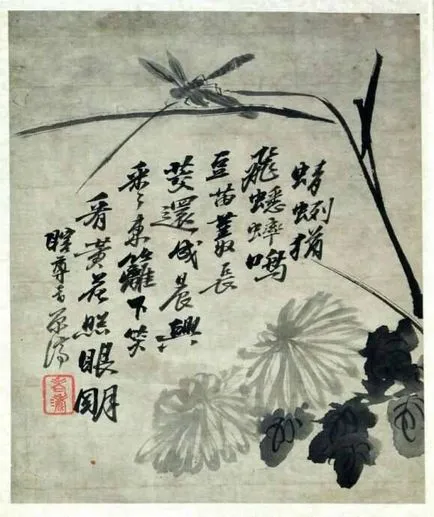 蜻蛚猶
飛蟋蟀鳴
豆苗叢長
莢還成晨興
采々東籬下笑
看黃花照眼朙
瞎尊者原濟